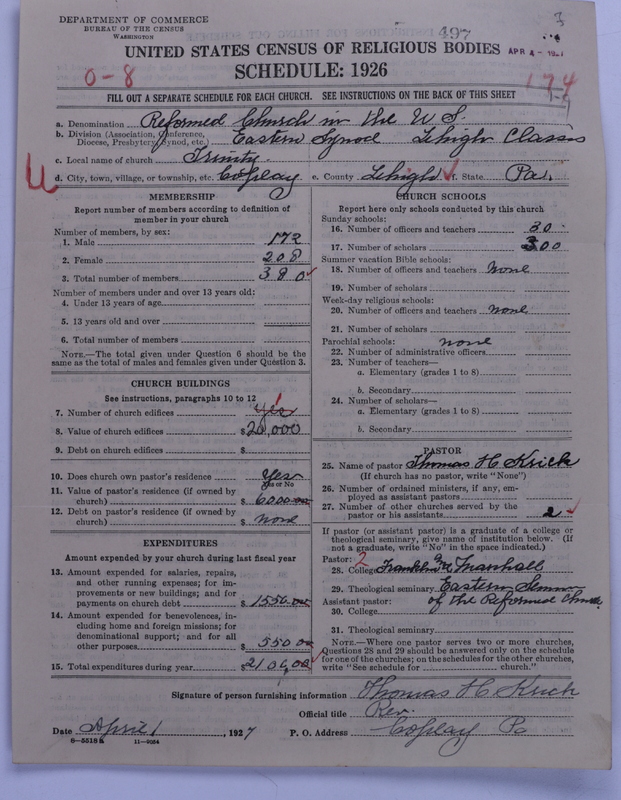 DEPARTMENT OF COMMERCE
BUREAU OF THE CENSUS
WASHINGTON
497
3
APR 4 - 1927
UNITED STATES CENSUS OF RELIGIOUS BODIES
SCHEDULE: 1926
0-8
174
FILL OUT A SEPARATE SCHEDULE FOR EACH CHURCH. SEE INSTRUCTIONS ON THE BACK OF THIS SHEET
a. Denomination Reformed Church in the U.S.
b. Division (Association, Conference, Diocese, Presbytery, Synod, etc.) Eastern Synod Lehigh Classis
c. Local name of church Trinity
d. City, town, village, or township, etc. Coplay e. County Lehigh f. State Pa.
MEMBERSHIP
Report number of members according to definition of
member in your church
Number of members, by sex:
1. Male 172
2. Female 208
3. Total number of members 380
Number of members under and over 13 years old:
4. Under 13 years of age
5. 13 years old and over
6. Total number of members
NOTE.—The total given under Question 6 should be
same as the total of males and females given under Question 3.
CHURCH BUILDINGS
See instructions, paragraphs 10 to 12
7. Number of church edifices yes 1
8. Value of church edifices $20,000
9. Debt on church edifices $
10. Does church own pastor's residence Yes
Yes or No
11. Value of pastor's residence (if owned by
church) $6000.00
12. Debt on pastor's residence (if owned by
church) $ none
EXPENDITURES
Amount expended by your church during last fiscal year
13. Amount expended for salaries, repairs,
and other running expenses; for im-
provements or new buildings; and for
payments on church debt $1556.00
14. Amount expended for benevolences, in-
cluding home and foreign missions; for
denominational support; and for all
other purposes $550.00
15. Total expenditures during year $2106.00
CHURCH SCHOOLS
Report here only schools conducted by this church
Sunday schools:
16. Number of officers and teachers 30
17. Number of scholars 300
Summer vacation Bible schools:
18. Number of officers and teachers None
19. Number of scholars
Week-day religious schools:
20. Number of officers and teachers none
21. Number of scholars
Parochial schools: none
22. Number of administrative officers
23. Number of teachers—
a. Elementary (grades 1 to 8)
b. Secondary
24. Number of scholars—
a. Elementary (grades 1 to 8)
b. Secondary
PASTOR
25. Name of pastor Thomas H Krick
(If church has no pastor, write "None")
26. Number of ordained ministers, if any, em-
ployed as assistant pastors
27. Number of other churches served by the
pastor or his assistants 2
If pastor (or assistant pastor) is a graduate of a college or
theological seminary, give name of institution below. (If
not a graduate, write "No" in the space indicated.)
Pastor: 2
28. College Franklin and Marshall
29. Theological seminary Eastern Semin
Assistant pastor: of the Reformed Church
30. College
31. Theological seminary
NOTE.—Where one pastor serves two or more churches,
Questions 28 and 29 should be answered only on the schedule
for one of the churches; on the schedules for the other churches,
write "See schedule for church."
Signature of person furnishing information Thomas H Krick
Official title Rev.
Date April 1, 1927 P. O. Address Coplay Pa
8-5518a 11-9054